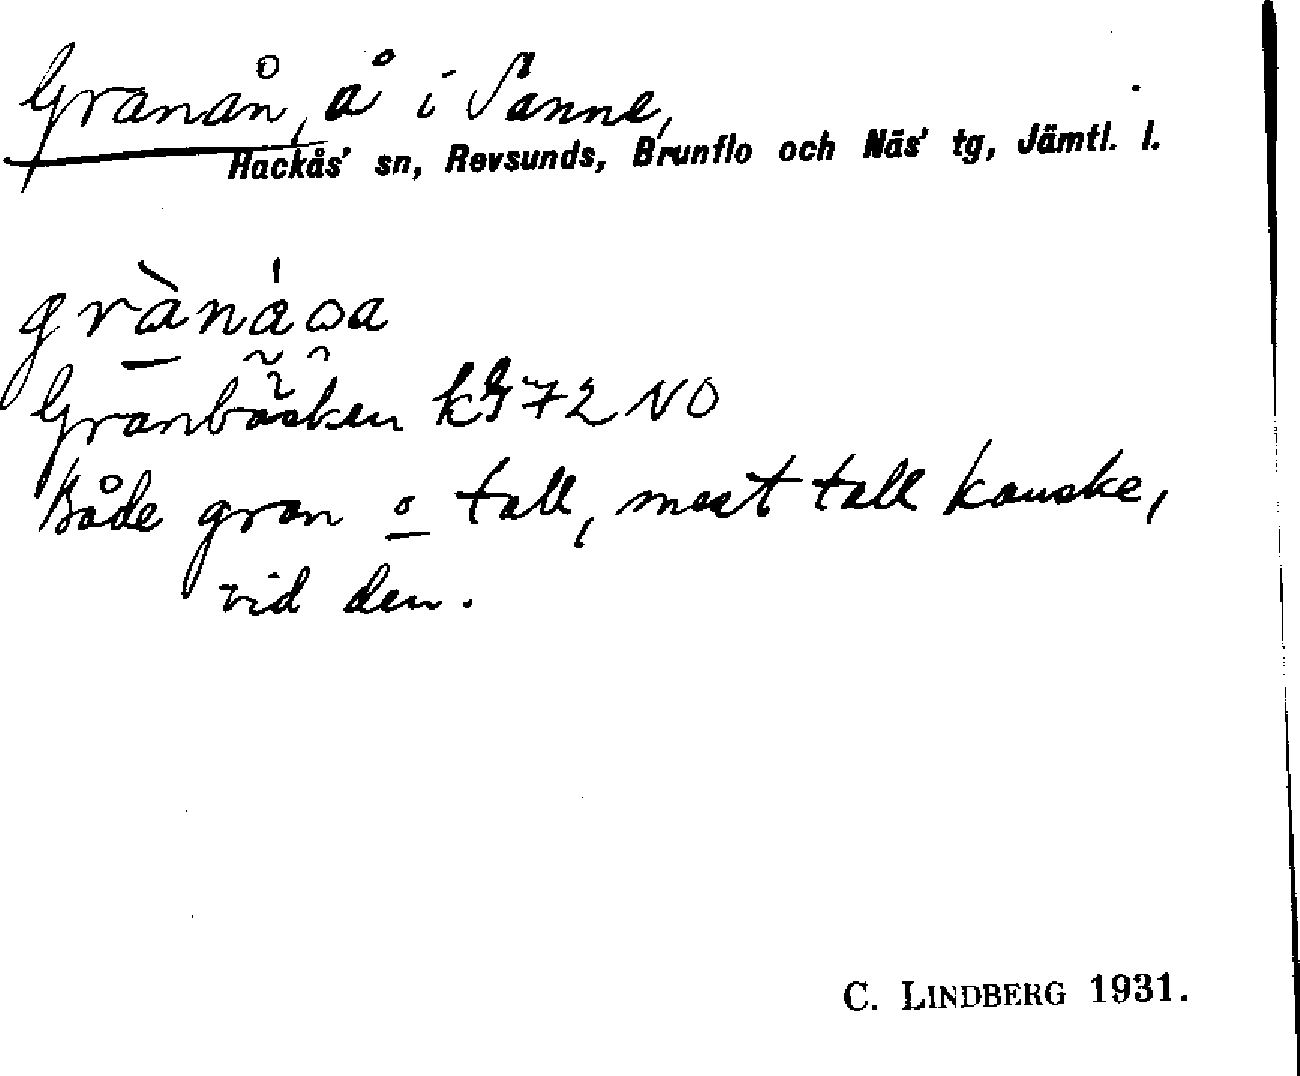 Granån, å i Sanne,
Hackås' sn, Revsunds, Brunflo och Näs' tg, Jämtl. l.
Granbäcken kg 72 NO
Både gran o tall, mest tall kanske,
vid den.
C. LINDBERG 1931.